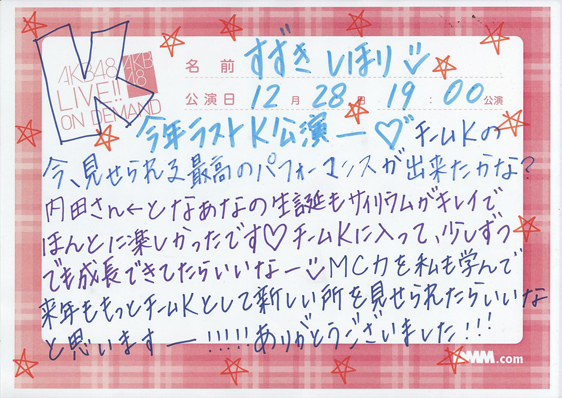 K
AKB48
LIVE!!
ON DEMAND
AKB
48
名前 すずき しほり
公演日 12月 28日 19:00公演
今年ラストK公演ー♡ チームKの
今、見せられる最高のパフォーマンスが出来たかな?
内田さん←となぁなの生誕もサイリウムがキレイで
ほんとに楽しかったです♡チームKに入って、少しずつ
でも成長できてたらいいなー MC力を私も学んで
来年ももっとチームKとして新しい所を見せられたらいいな
と思いますー!!!!!ありがとうございました!!!
DMM.com